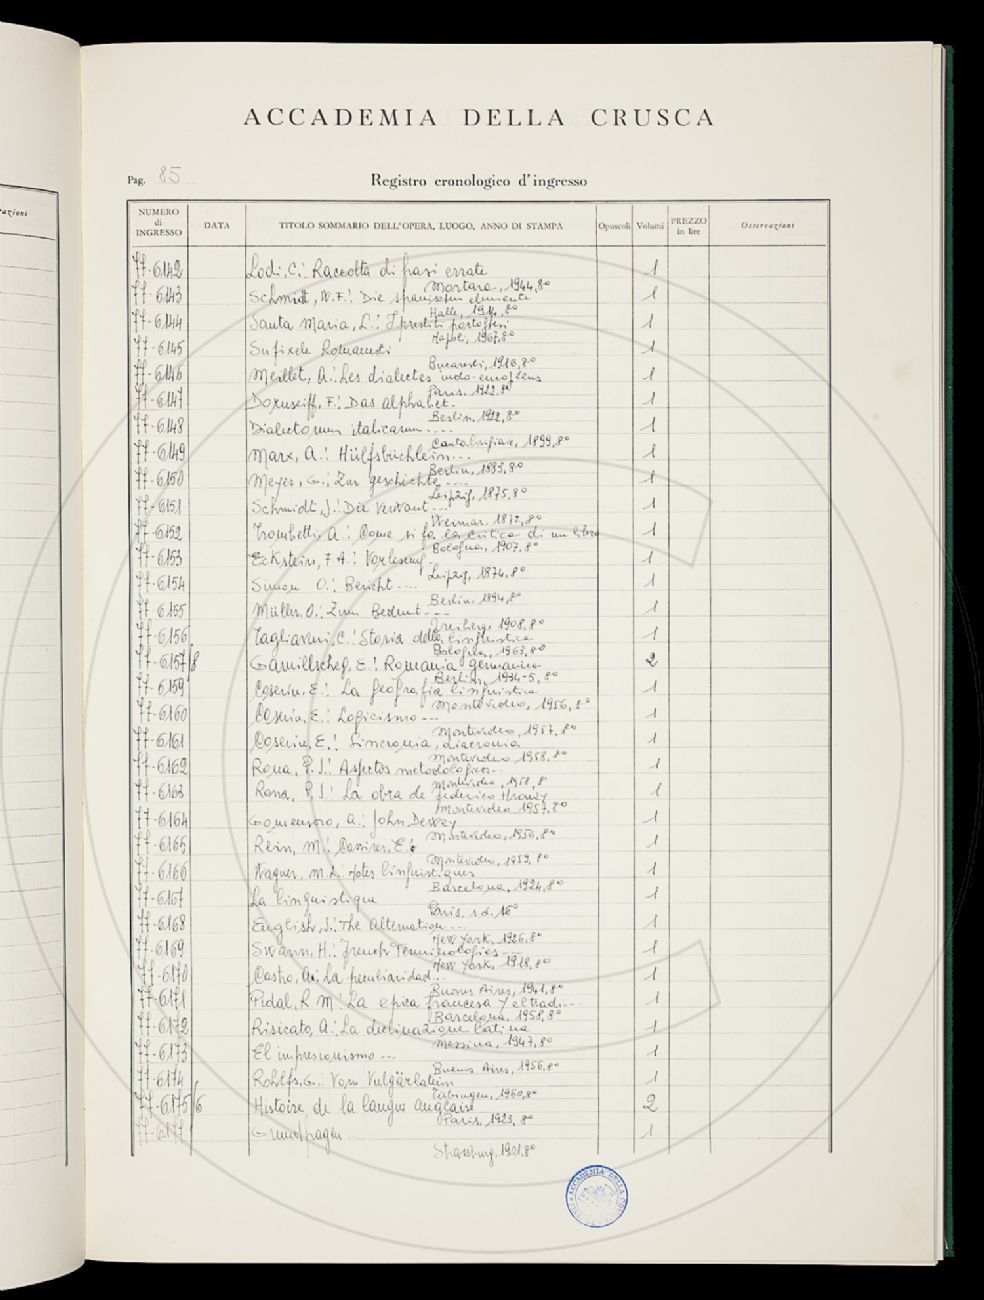 azioni
ACCADEMIA DELLA CRUSCA
Pag. 85
Registro cronologico d'ingresso
NUMERO di INGRESSO DATA TITOLO SOMMARIO DELL'OPERA, LUOGO, ANNO DI STAMPA Opuscoli Volumi PREZZO in lire Osservazioni
77-6142 Lodi, C.: Raccolta di frasi errate 1
Mortara, 1944, 8°
77-6143 Schmidt, W.F.: Die spanischen elemente 1
Halle, 1914, 8°
77-6144 Santa Maria, L.: I prestiti portoghesi 1
Napoli, 1967, 8°
77-6145 Sufixele Romanesti 1
Bucaresti, 1916, 8°
77-6146 Meillet, A.: Les dialectes indo-européens 1
Paris, 1922, 8°
77-6147 Dornseiff, F.: Das alphabet. 1
Berlin, 1922, 8°
77-6148 Dialectorum italicarum .... 1
1899, 8°
77-6149 Marx, A.: Hülfsbüchlein... 1
Berlin, 1883, 8°
77-6150 Meyer, G.: Zur geschichte .... 1
Leipzig, 1875, 8°
77-6151 Schmidt, J.: Die verwant ... 1
Weimar, 1872, 8°
77-6152 Trombetti, A.: Come si fa la critica di un libro 1
Bologna, 1907, 8°
77-6153 Eckstein, F.A.: Vorlesung 1
Leipzig, 1874, 8°
77-6154 Simon O.: Bericht .... 1
Berlin, 1894, 8°
77-6155 Müller, O.: Zum Bedeut --- 1
Freiberg, 1908, 8°
77-6156 Tagliavini, C.: Storia della linguistica 1
Bologna, 1963, 8°
77-6157/8 Gamillscheg, E.: Romania germanica 2
Berlin, 1934-5, 8°
77-6159 Coseriu, E.: La geografia linguistica 1
Montevideo, 1956, 8°
77-6160 Coseriu, E.: Logicismo --- 1
Montevideo, 1957, 8°
77-6161 Coseriu, E.: Sincronia, diacronia 1
Montevideo 1958, 8°
77-6162 Rona, P.J.: Aspectos metodologicos... 1
Montevideo, 1958, 8°
77-6163 Rona, P.J.: La obra de Federico Hrozny 1
Montevideo 1957, 8°
77-6164 Gomensoro, A.: John Dewey 1
Montevideo, 1956, 8°
77-6165 Rein, M.: Cassirer, E. 1
Montevideo, 1959, 8°
77-6166 Wagner, M.L.: Notes linguistiques 1
Barcelona, 1924, 8°
77-6167 La linguistique 1
Paris, s.d. 16°
77-6168 English, J.: The alternation... 1
New York, 1926, 8°
77-6169 Swann, H.: French Terminologies... 1
New York, 1918, 8°
77-6170 Castro, A.: La peculiaridad... 1
Buenos Aires, 1941, 8°
77-6171 Pidal, R.M.: La epica francesa y el tradi... 1
Barcelona, 1958, 8°
77-6172 Risicato, A.: La declinazione latina 1
Messina, 1947, 8°
77-6173 El impresionismo --- 1
Buenos Aires, 1956, 8°
77-6174 Rohlfs, G.: Vom Vulgärlatein 1
Tübingen, 1960, 8°
77-6175/6 Histoire de la langue anglaise 2
Paris, 1923, 8°
77-6177 1
Strassburg, 1901, 8°
ACCADEMIA DELLA CRUSCA